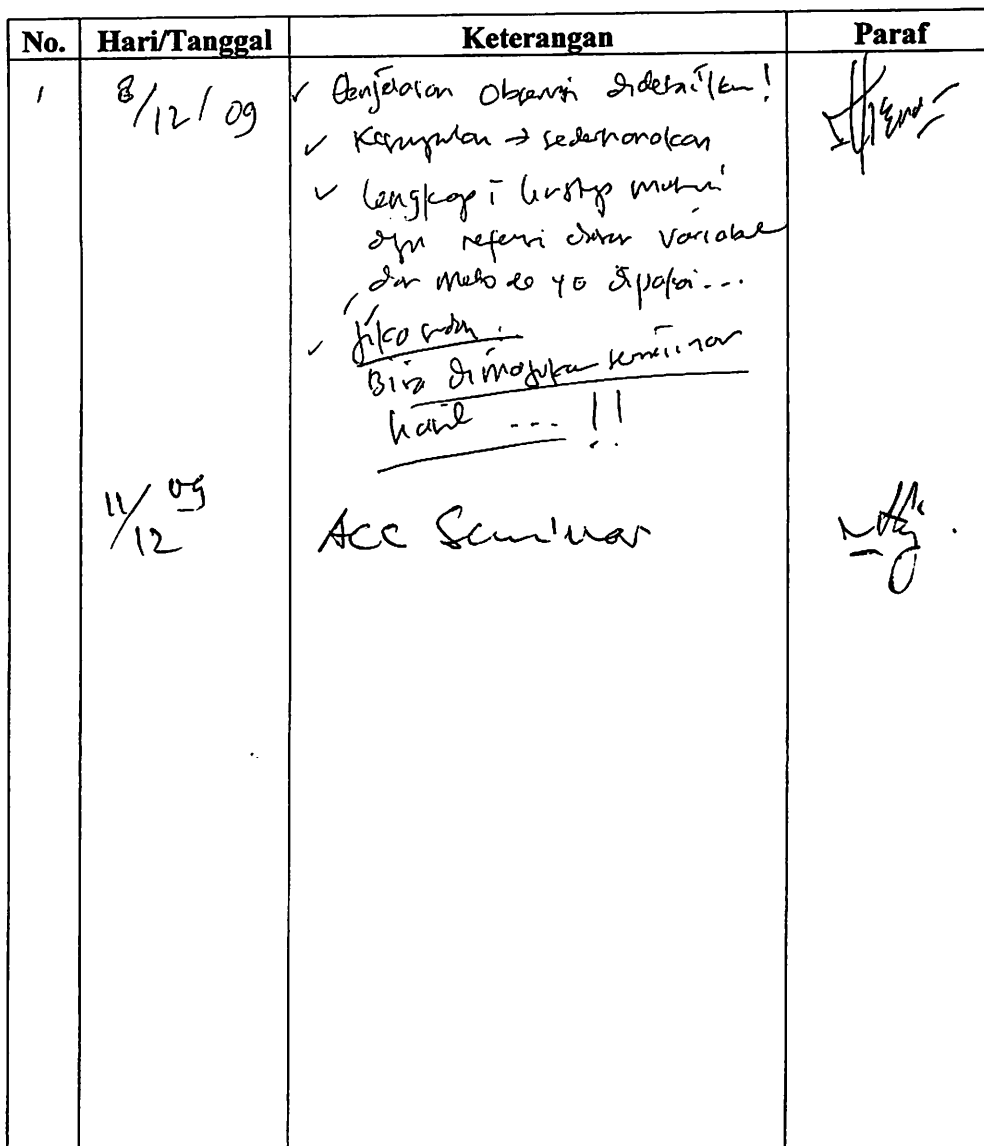 No. Hari/Tanggal Keterangan Paraf
1 8/12/09 ✓ Penjelasan Observasi didetailkan!
✓ Kesimpulan → sederhanakan
✓ lengkapi
dgn referensi variabel
dan metode yg dipakai...
✓ jika sudah
Bisa dimajukan seminar
hasil ... !!
11/12 09 Acc Seminar